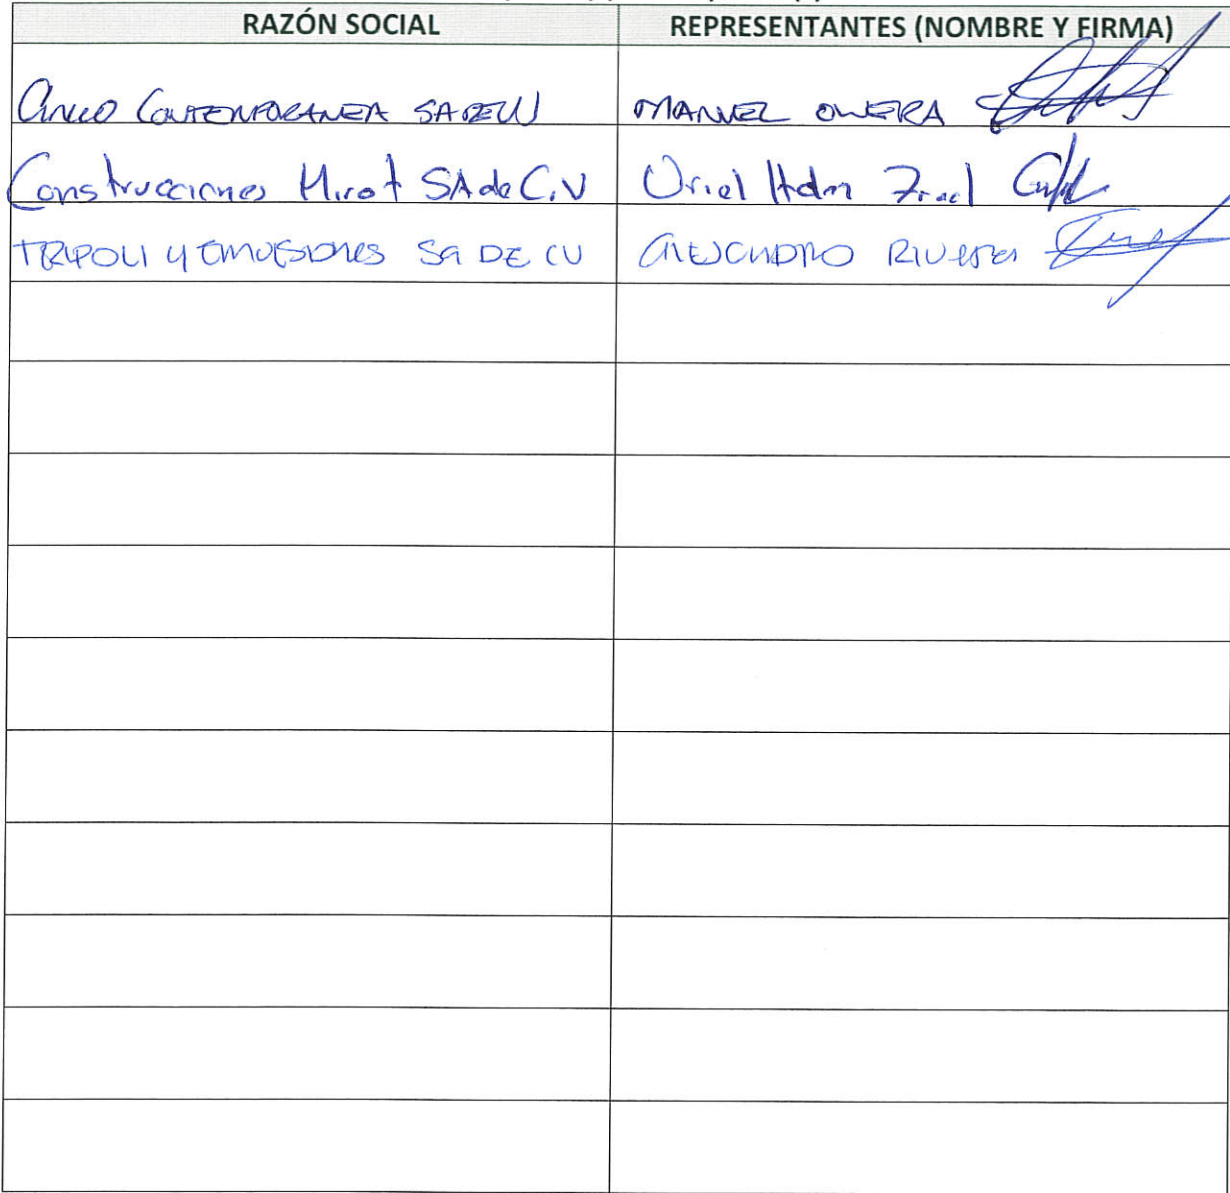 RAZÓN SOCIAL REPRESENTANTES (NOMBRE Y FIRMA)
CONTEMPORANEA SA DE CV MANUEL OLVERA
Construcciones Mirot SA de C.V Uriel Hdn
TRIPOLI Y EMULSIONES SA DE CV ALEJANDRO RIVERA